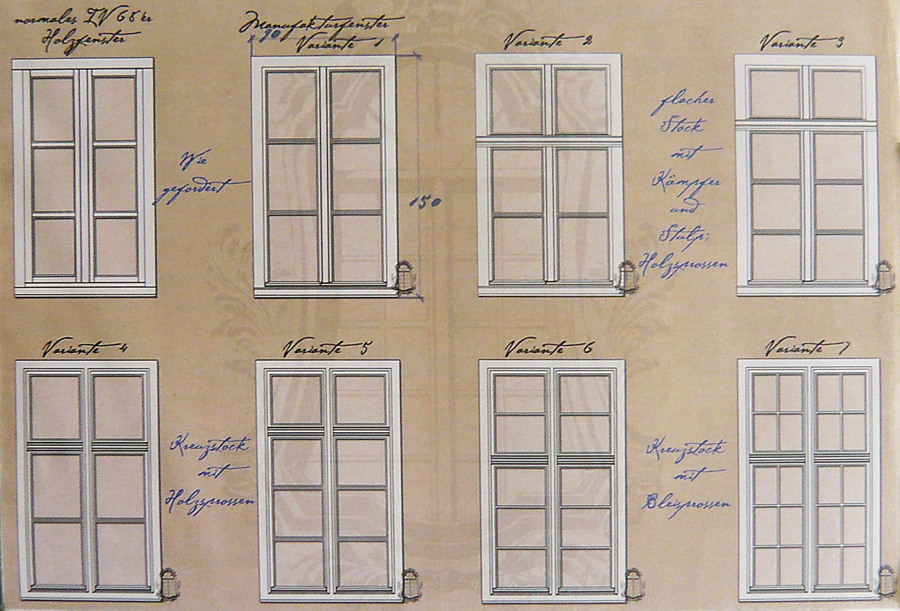 normales IV 68'er
Holzfenster
Manufakturfenster
Variante 1
90
150
Wie
gefordert
Variante 2
flacher
Stock
mit
Kämpfer
und
Stulp;
Holzsprossen
Variante 3
Variante 4
Kreuzstock
mit
Holzsprossen
Variante 5
Variante 6
Kreuzstock
mit
Bleisprossen
Variante 7